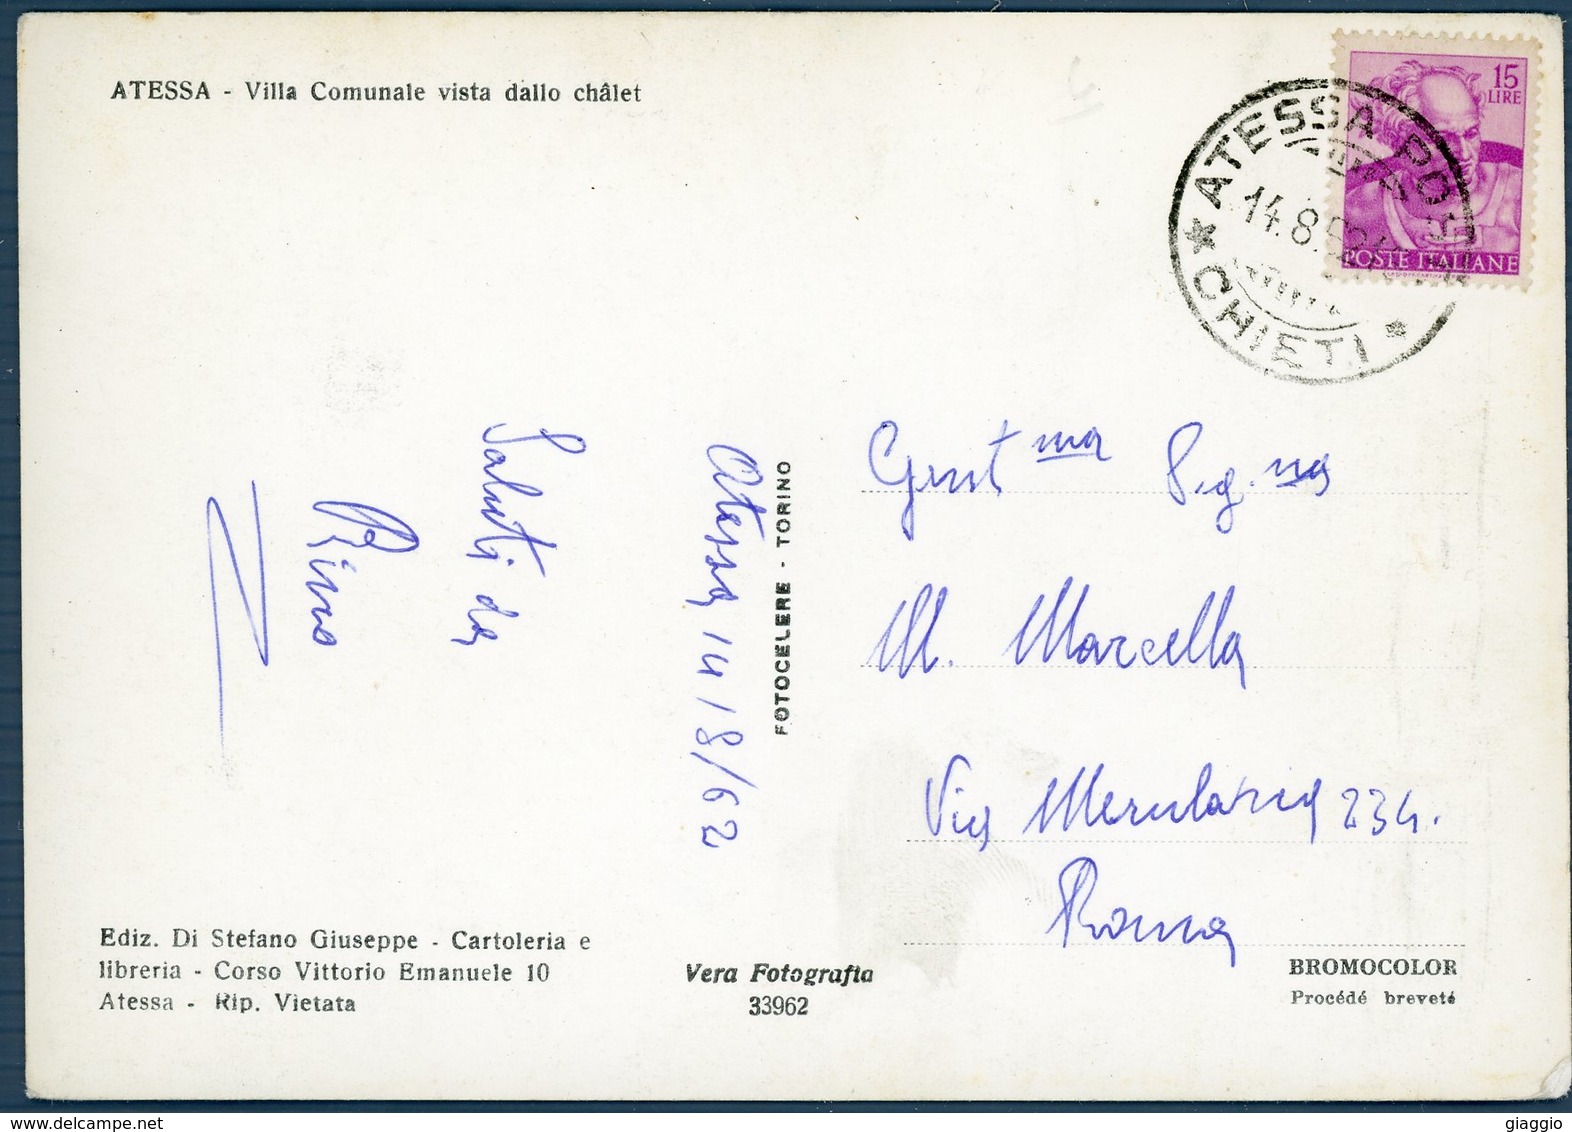 ATESSA - Villa Comunale vista dallo châlet
15
LIRE
POSTE ITALIANE
ATESSA POSTE
14.8.62
CHIETI
Atessa 14/8/62
Saluti da
Rino
FOTOCELERE - TORINO
Gent ma Sig.na
M. Marcella
Via Merulana 234.
Roma
Ediz. Di Stefano Giuseppe - Cartoleria e
libreria - Corso Vittorio Emanuele 10
Atessa - Rip. Vietata
Vera Fotografia
33962
BROMOCOLOR
Procédé breveté
giaggio